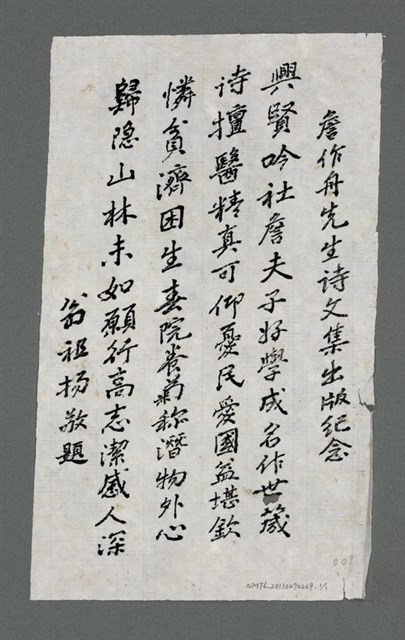 詹作舟先生诗文集出版紀念
興賢吟社詹夫子好學成名作世箴
诗擅醫精真可仰憂民愛國益堪欽
憐貧濟困生春院養菊称潛物外心
歸隐山林未如願行高志潔感人深
翁祖揚敬題
003
NMTL20110270269-1/1